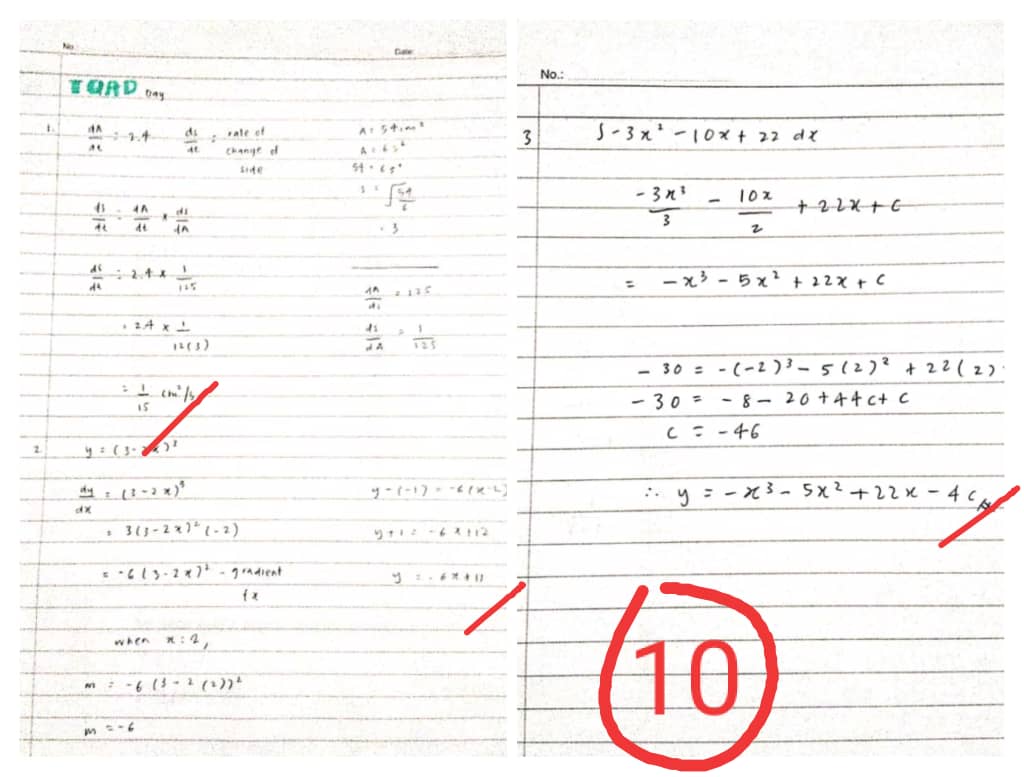 No
Date
TQAD Day
1. dA/dt = 2.4 ds/dt = rate of change of side
A = 54 cm²
A = 6s²
54 = 6s²
s = √54/6
= 3
ds/dt = dA/dt × ds/dA
ds/dt = 2.4 × 1/12s
dA/ds = 12s
= 2.4 × 1/12(3)
ds/dA = 1/12s
= 1/15 cm²/s
2. y = (3-2x)³
dy/dx = (3-2x)³
= 3(3-2x)² (-2)
= -6(3-2x)² - gradient fx
when x = 2,
m = -6 (3-2(2))²
m = -6
y-(-1) = -6(x-2)
y+1 = -6x+12
y = -6x+11
No.:
3 ∫-3x² -10x + 22 dx
-3x³/3 - 10x/2 + 22x + c
= -x³ - 5x² + 22x + c
-30 = -(-2)³ - 5(2)² + 22(2)
-30 = -8 - 20 + 44c + c
c = -46
∴ y = -x³ - 5x² + 22x - 4
10